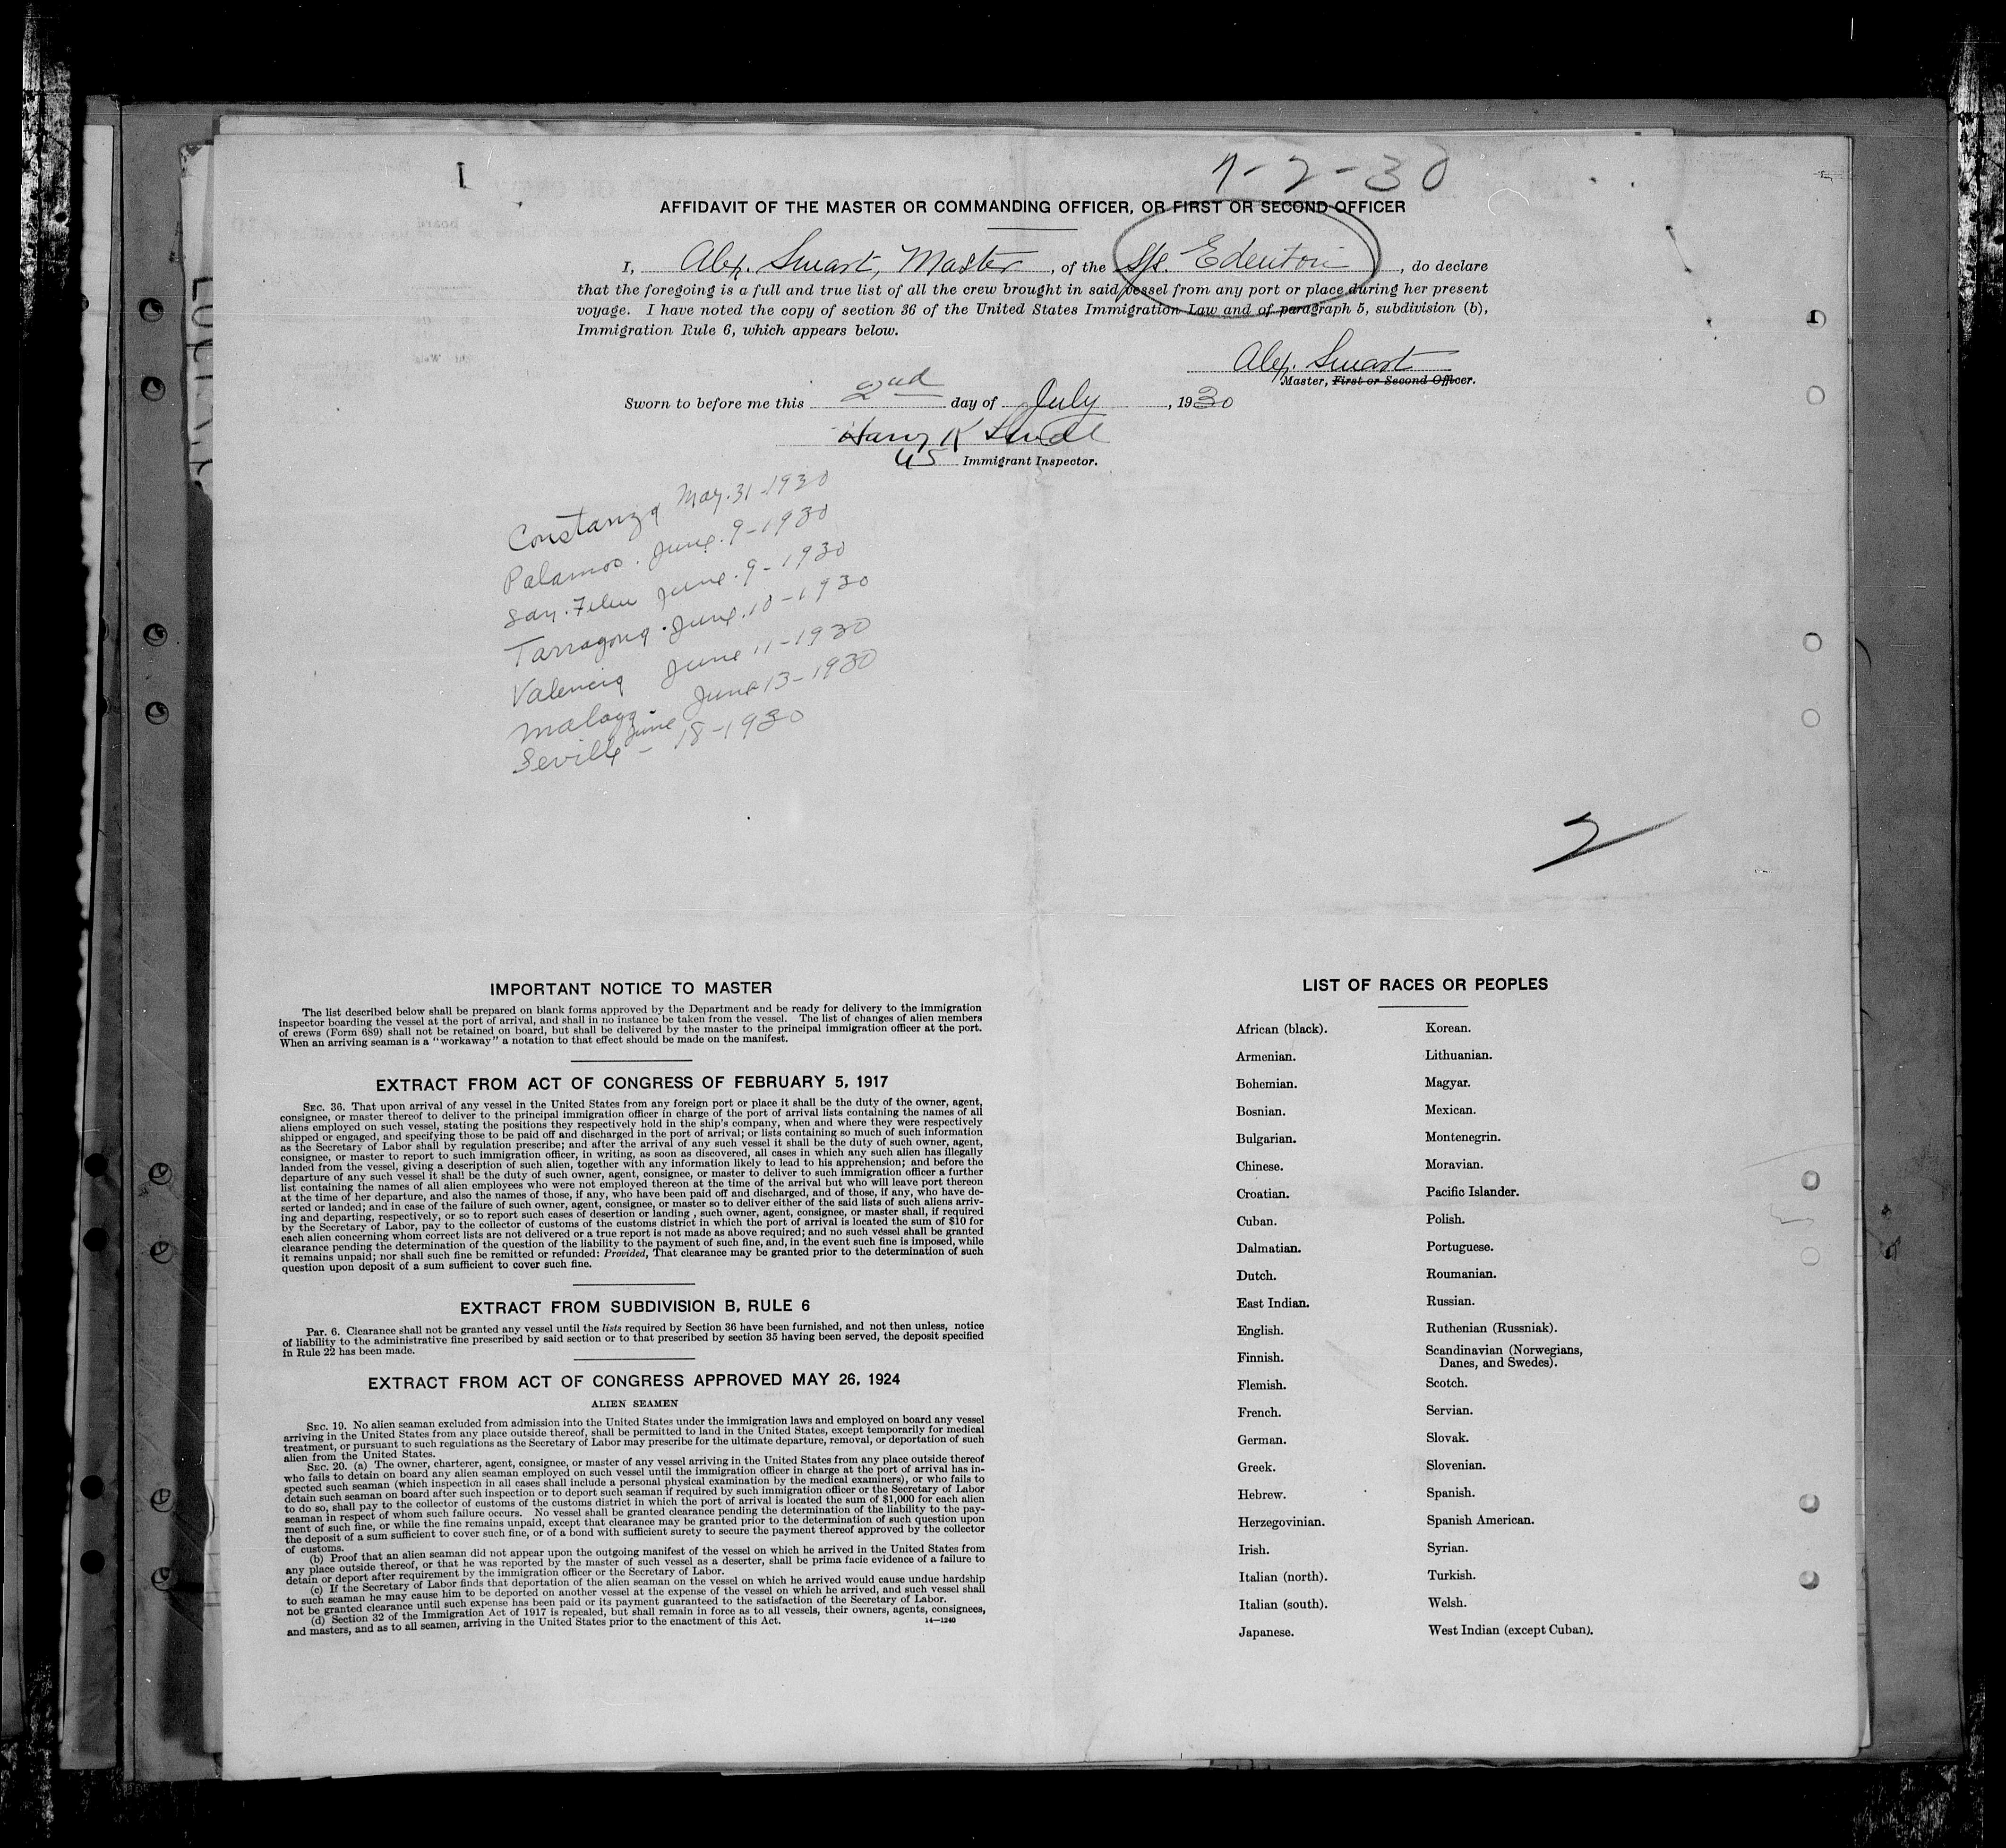 7-2-30
AFFIDAVIT OF THE MASTER OR COMMANDING OFFICER, OR FIRST OR SECOND OFFICER
I, Alex. Smart, Master, of the S/s. Edenton, do declare
that the foregoing is a full and true list of all the crew brought in said vessel from any port or place during her present
voyage. I have noted the copy of section 36 of the United States Immigration Law and of paragraph 5, subdivision (b),
Immigration Rule 6, which appears below.
Alex. Smart
Master, First or Second Officer.
Sworn to before me this 2nd day of July, 1930
Harry K
US Immigrant Inspector.
Constanza May. 31-1930
Palamos. June. 9-1930
San. Feleu June. 9-1930
Tarragona. June. 10-1930
Valencia June 11-1930
Malaga. June 13-1930
Seville June - 18-1930
2
IMPORTANT NOTICE TO MASTER
The list described below shall be prepared on blank forms approved by the Department and be ready for delivery to the immigration
inspector boarding the vessel at the port of arrival, and shall in no instance be taken from the vessel. The list of changes of alien members
of crews (Form 689) shall not be retained on board, but shall be delivered by the master to the principal immigration officer at the port.
When an arriving seaman is a "workaway" a notation to that effect should be made on the manifest.
EXTRACT FROM ACT OF CONGRESS OF FEBRUARY 5, 1917
SEC. 36. That upon arrival of any vessel in the United States from any foreign port or place it shall be the duty of the owner, agent,
consignee, or master thereof to deliver to the principal immigration officer in charge of the port of arrival lists containing the names of all
aliens employed on such vessel, stating the positions they respectively hold in the ship's company, when and where they were respectively
shipped or engaged, and specifying those to be paid off and discharged in the port of arrival; or lists containing so much of such information
as the Secretary of Labor shall by regulation prescribe; and after the arrival of any such vessel it shall be the duty of such owner, agent,
consignee, or master to report to such immigration officer, in writing, as soon as discovered, all cases in which any such alien has illegally
landed from the vessel, giving a description of such alien, together with any information likely to lead to his apprehension; and before the
departure of any such vessel it shall be the duty of such owner, agent, consignee, or master to deliver to such immigration officer a further
list containing the names of all alien employees who were not employed thereon at the time of the arrival but who will leave port thereon
at the time of her departure, and also the names of those, if any, who have been paid off and discharged, and of those, if any, who have de-
serted or landed; and in case of the failure of such owner, agent, consignee, or master so to deliver either of the said lists of such aliens arriv-
ing and departing, respectively, or so to report such cases of desertion or landing , such owner, agent, consignee, or master shall, if required
by the Secretary of Labor, pay to the collector of customs of the customs district in which the port of arrival is located the sum of $10 for
each alien concerning whom correct lists are not delivered or a true report is not made as above required; and no such vessel shall be granted
clearance pending the determination of the question of the liability to the payment of such fine, and, in the event such fine is imposed, while
it remains unpaid; nor shall such fine be remitted or refunded: Provided, That clearance may be granted prior to the determination of such
question upon deposit of a sum sufficient to cover such fine.
EXTRACT FROM SUBDIVISION B, RULE 6
Par. 6. Clearance shall not be granted any vessel until the lists required by Section 36 have been furnished, and not then unless, notice
of liability to the administrative fine prescribed by said section or to that prescribed by section 35 having been served, the deposit specified
in Rule 22 has been made.
EXTRACT FROM ACT OF CONGRESS APPROVED MAY 26, 1924
ALIEN SEAMEN
SEC. 19. No alien seaman excluded from admission into the United States under the immigration laws and employed on board any vessel
arriving in the United States from any place outside thereof, shall be permitted to land in the United States, except temporarily for medical
treatment, or pursuant to such regulations as the Secretary of Labor may prescribe for the ultimate departure, removal, or deportation of such
alien from the United States.
SEC. 20. (a) The owner, charterer, agent, consignee, or master of any vessel arriving in the United States from any place outside thereof
who fails to detain on board any alien seaman employed on such vessel until the immigration officer in charge at the port of arrival has in-
spected such seaman (which inspection in all cases shall include a personal physical examination by the medical examiners), or who fails to
detain such seaman on board after such inspection or to deport such seaman if required by such immigration officer or the Secretary of Labor
to do so, shall pay to the collector of customs of the customs district in which the port of arrival is located the sum of $1,000 for each alien
seaman in respect of whom such failure occurs. No vessel shall be granted clearance pending the determination of the liability to the pay-
ment of such fine, or while the fine remains unpaid, except that clearance may be granted prior to the determination of such question upon
the deposit of a sum sufficient to cover such fine, or of a bond with sufficient surety to secure the payment thereof approved by the collector
of customs.
(b) Proof that an alien seaman did not appear upon the outgoing manifest of the vessel on which he arrived in the United States from
any place outside thereof, or that he was reported by the master of such vessel as a deserter, shall be prima facie evidence of a failure to
detain or deport after requirement by the immigration officer or the Secretary of Labor.
(c) If the Secretary of Labor finds that deportation of the alien seaman on the vessel on which he arrived would cause undue hardship
to such seaman he may cause him to be deported on another vessel at the expense of the vessel on which he arrived, and such vessel shall
not be granted clearance until such expense has been paid or its payment guaranteed to the satisfaction of the Secretary of Labor.
(d) Section 32 of the Immigration Act of 1917 is repealed, but shall remain in force as to all vessels, their owners, agents, consignees,
and masters, and as to all seamen, arriving in the United States prior to the enactment of this Act. 14—1240
LIST OF RACES OR PEOPLES
African (black). Korean.
Armenian. Lithuanian.
Bohemian. Magyar.
Bosnian. Mexican.
Bulgarian. Montenegrin.
Chinese. Moravian.
Croatian. Pacific Islander.
Cuban. Polish.
Dalmatian. Portuguese.
Dutch. Roumanian.
East Indian. Russian.
English. Ruthenian (Russniak).
Finnish. Scandinavian (Norwegians,
Danes, and Swedes).
Flemish. Scotch.
French. Servian.
German. Slovak.
Greek. Slovenian.
Hebrew. Spanish.
Herzegovinian. Spanish American.
Irish. Syrian.
Italian (north). Turkish.
Italian (south). Welsh.
Japanese. West Indian (except Cuban).